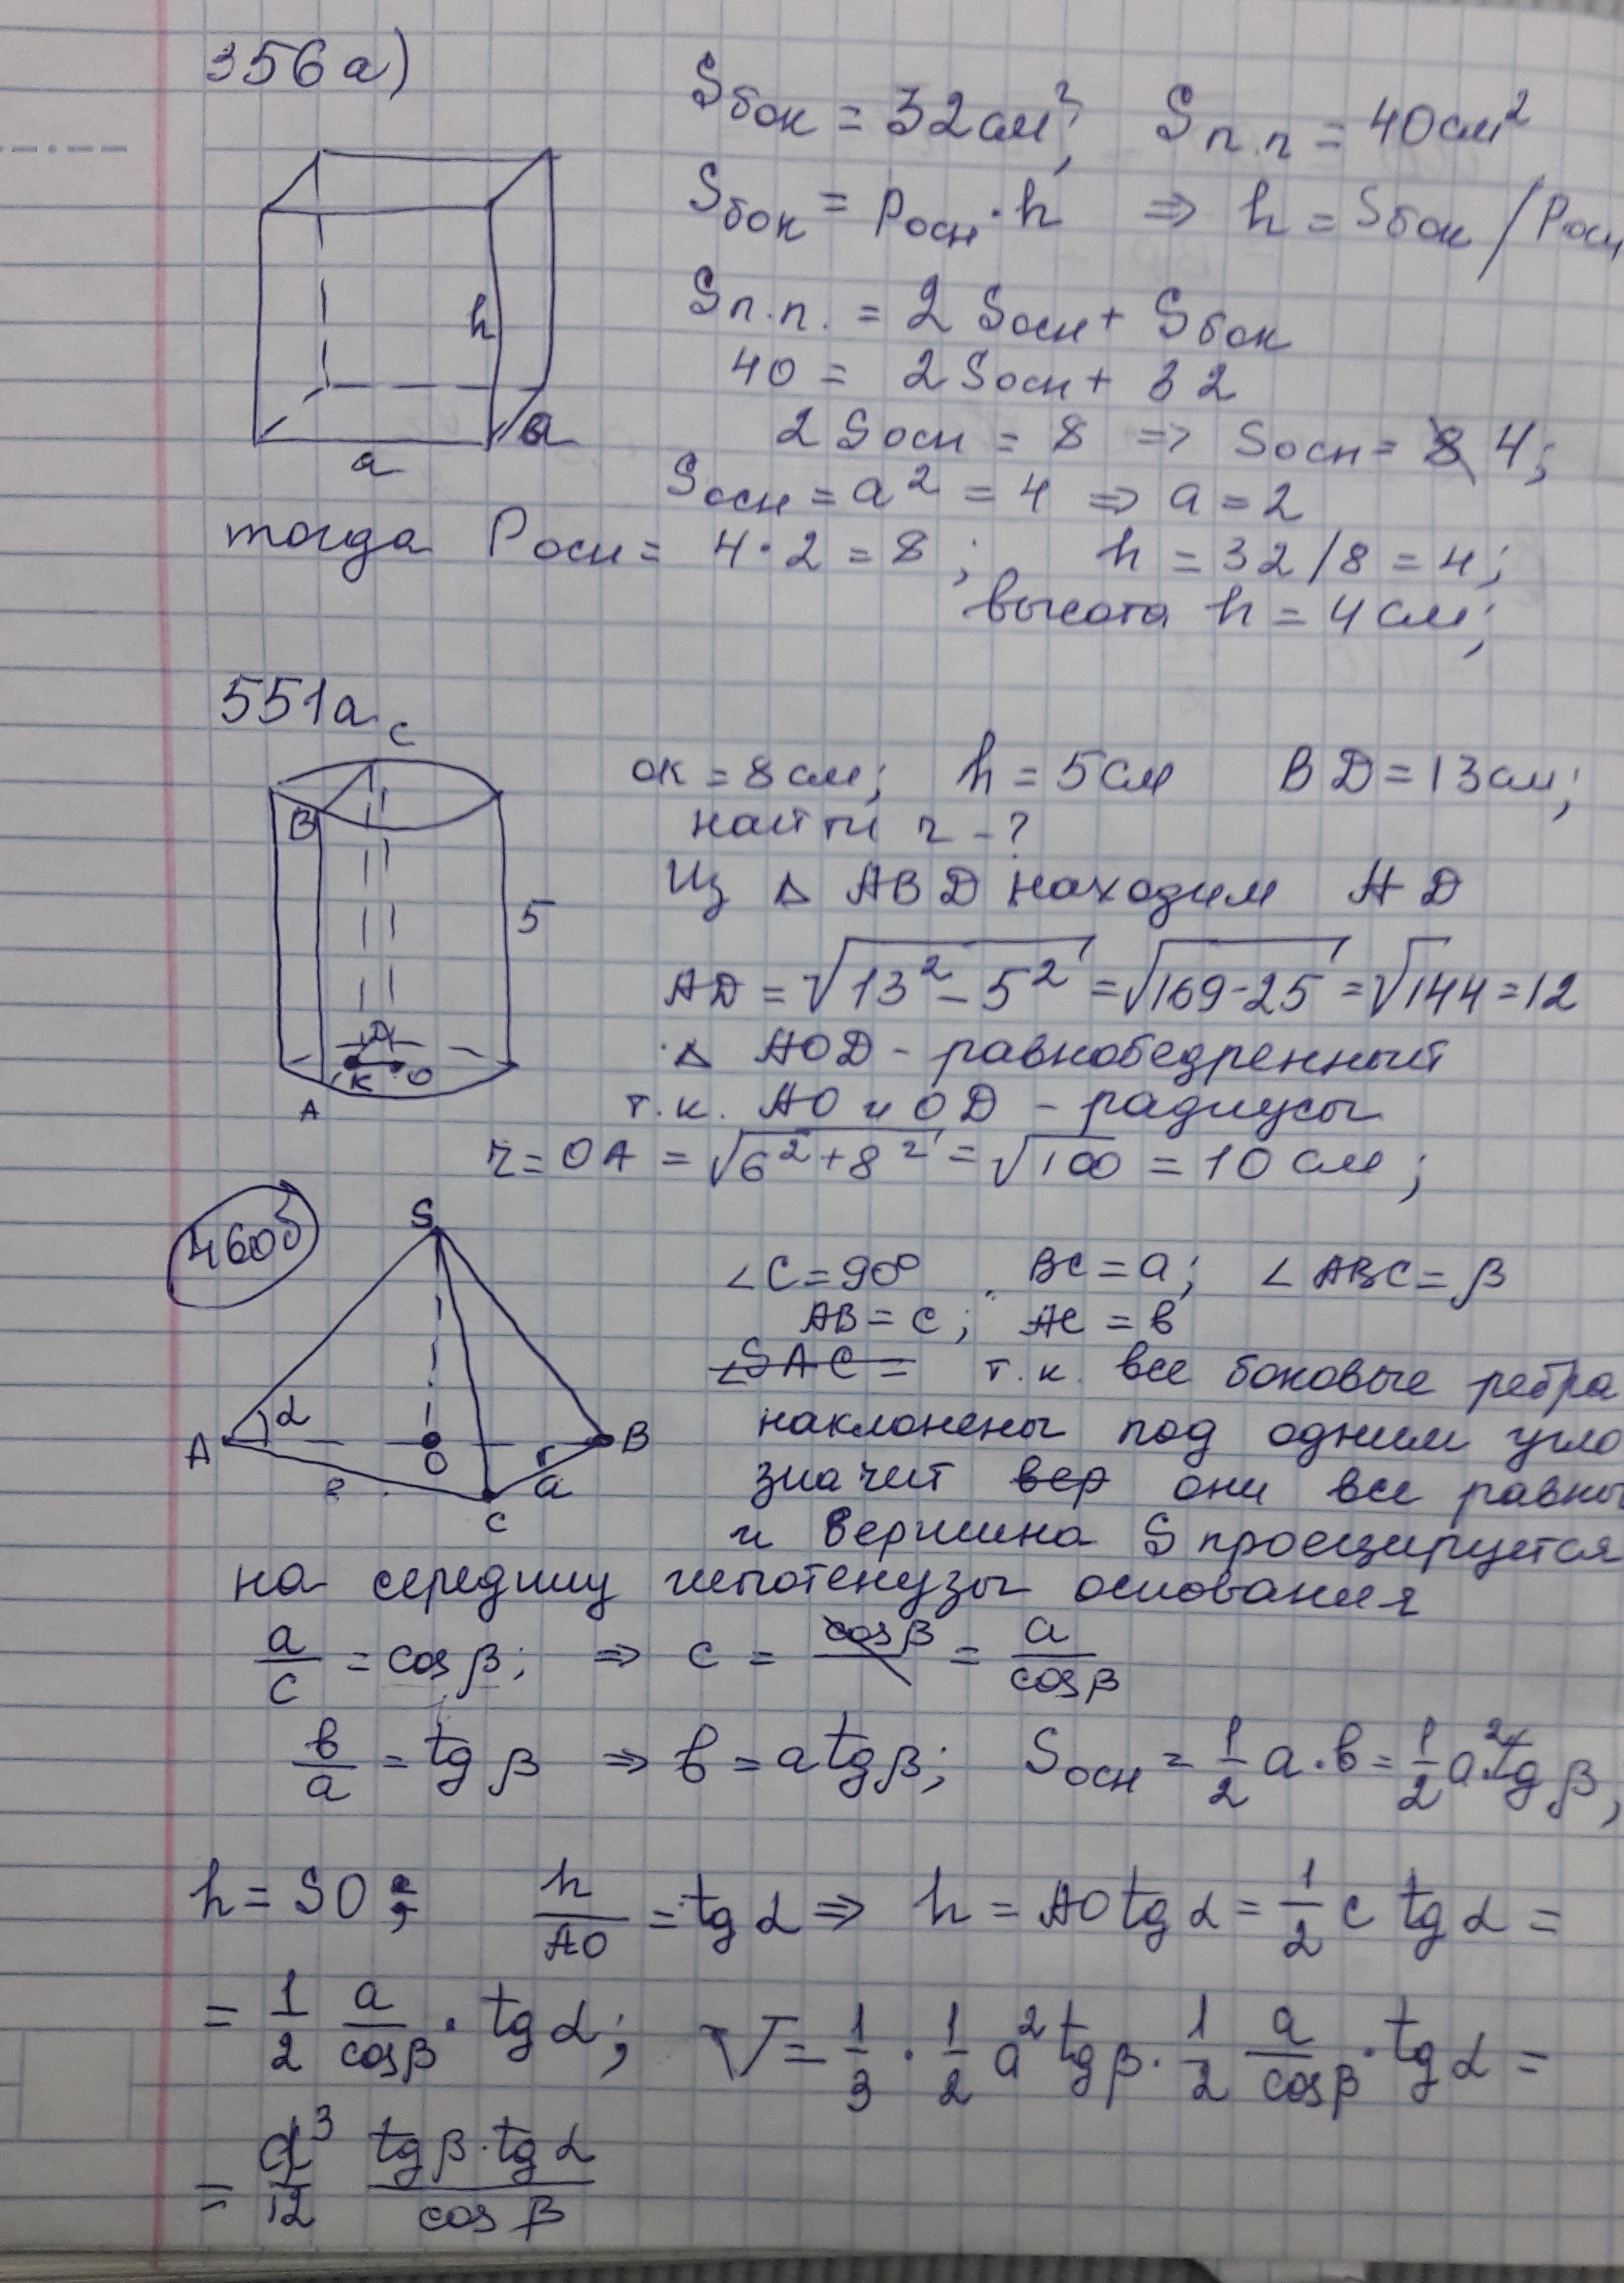 356а)
Sбок = 32см²; Sп.п = 40см²
Sбок = Pосн · h ⇒ h = Sбок / Pосн
Sп.п. = 2 Sосн + Sбок
40 = 2 Sосн + 32
2 Sосн = 8 ⇒ Sосн = 4;
h
a
a
Sосн = a² = 4 ⇒ a = 2
тогда Pосн = 4 · 2 = 8 ; h = 32 / 8 = 4 ;
высота h = 4 см;
551а
C
B
5
D
K O
A
OK = 8 см; h = 5 см BD = 13 см;
найти r - ?
Из Δ ABD находим AD
AD = √13² - 5² = √169-25 = √144 = 12
Δ AOD - равнобедренный
т.к. AO и OD - радиусы
r = OA = √6² + 8² = √100 = 10 см ;
460б
S
A α O B
a
C
∠C = 90° BC = a; ∠ABC = β
AB = c; AC = b
∠SAC = т.к. все боковые ребра
наклонены под одним угло
значит вер они все равны
и вершина S проецируется
на середину гипотенузы основания
a/c = cos β; ⇒ c = cosβ = a/cosβ
b/a = tg β ⇒ b = a tg β; Sосн = 1/2 a · b = 1/2 a² tg β;
h = SO ; h/AO = tg α ⇒ h = AO tg α = 1/2 c tg α =
= 1/2 a/cosβ · tg α; V = 1/3 · 1/2 a² tg β · 1/2 a/cosβ · tg α =
= a³/12 tg β · tg α/cos β